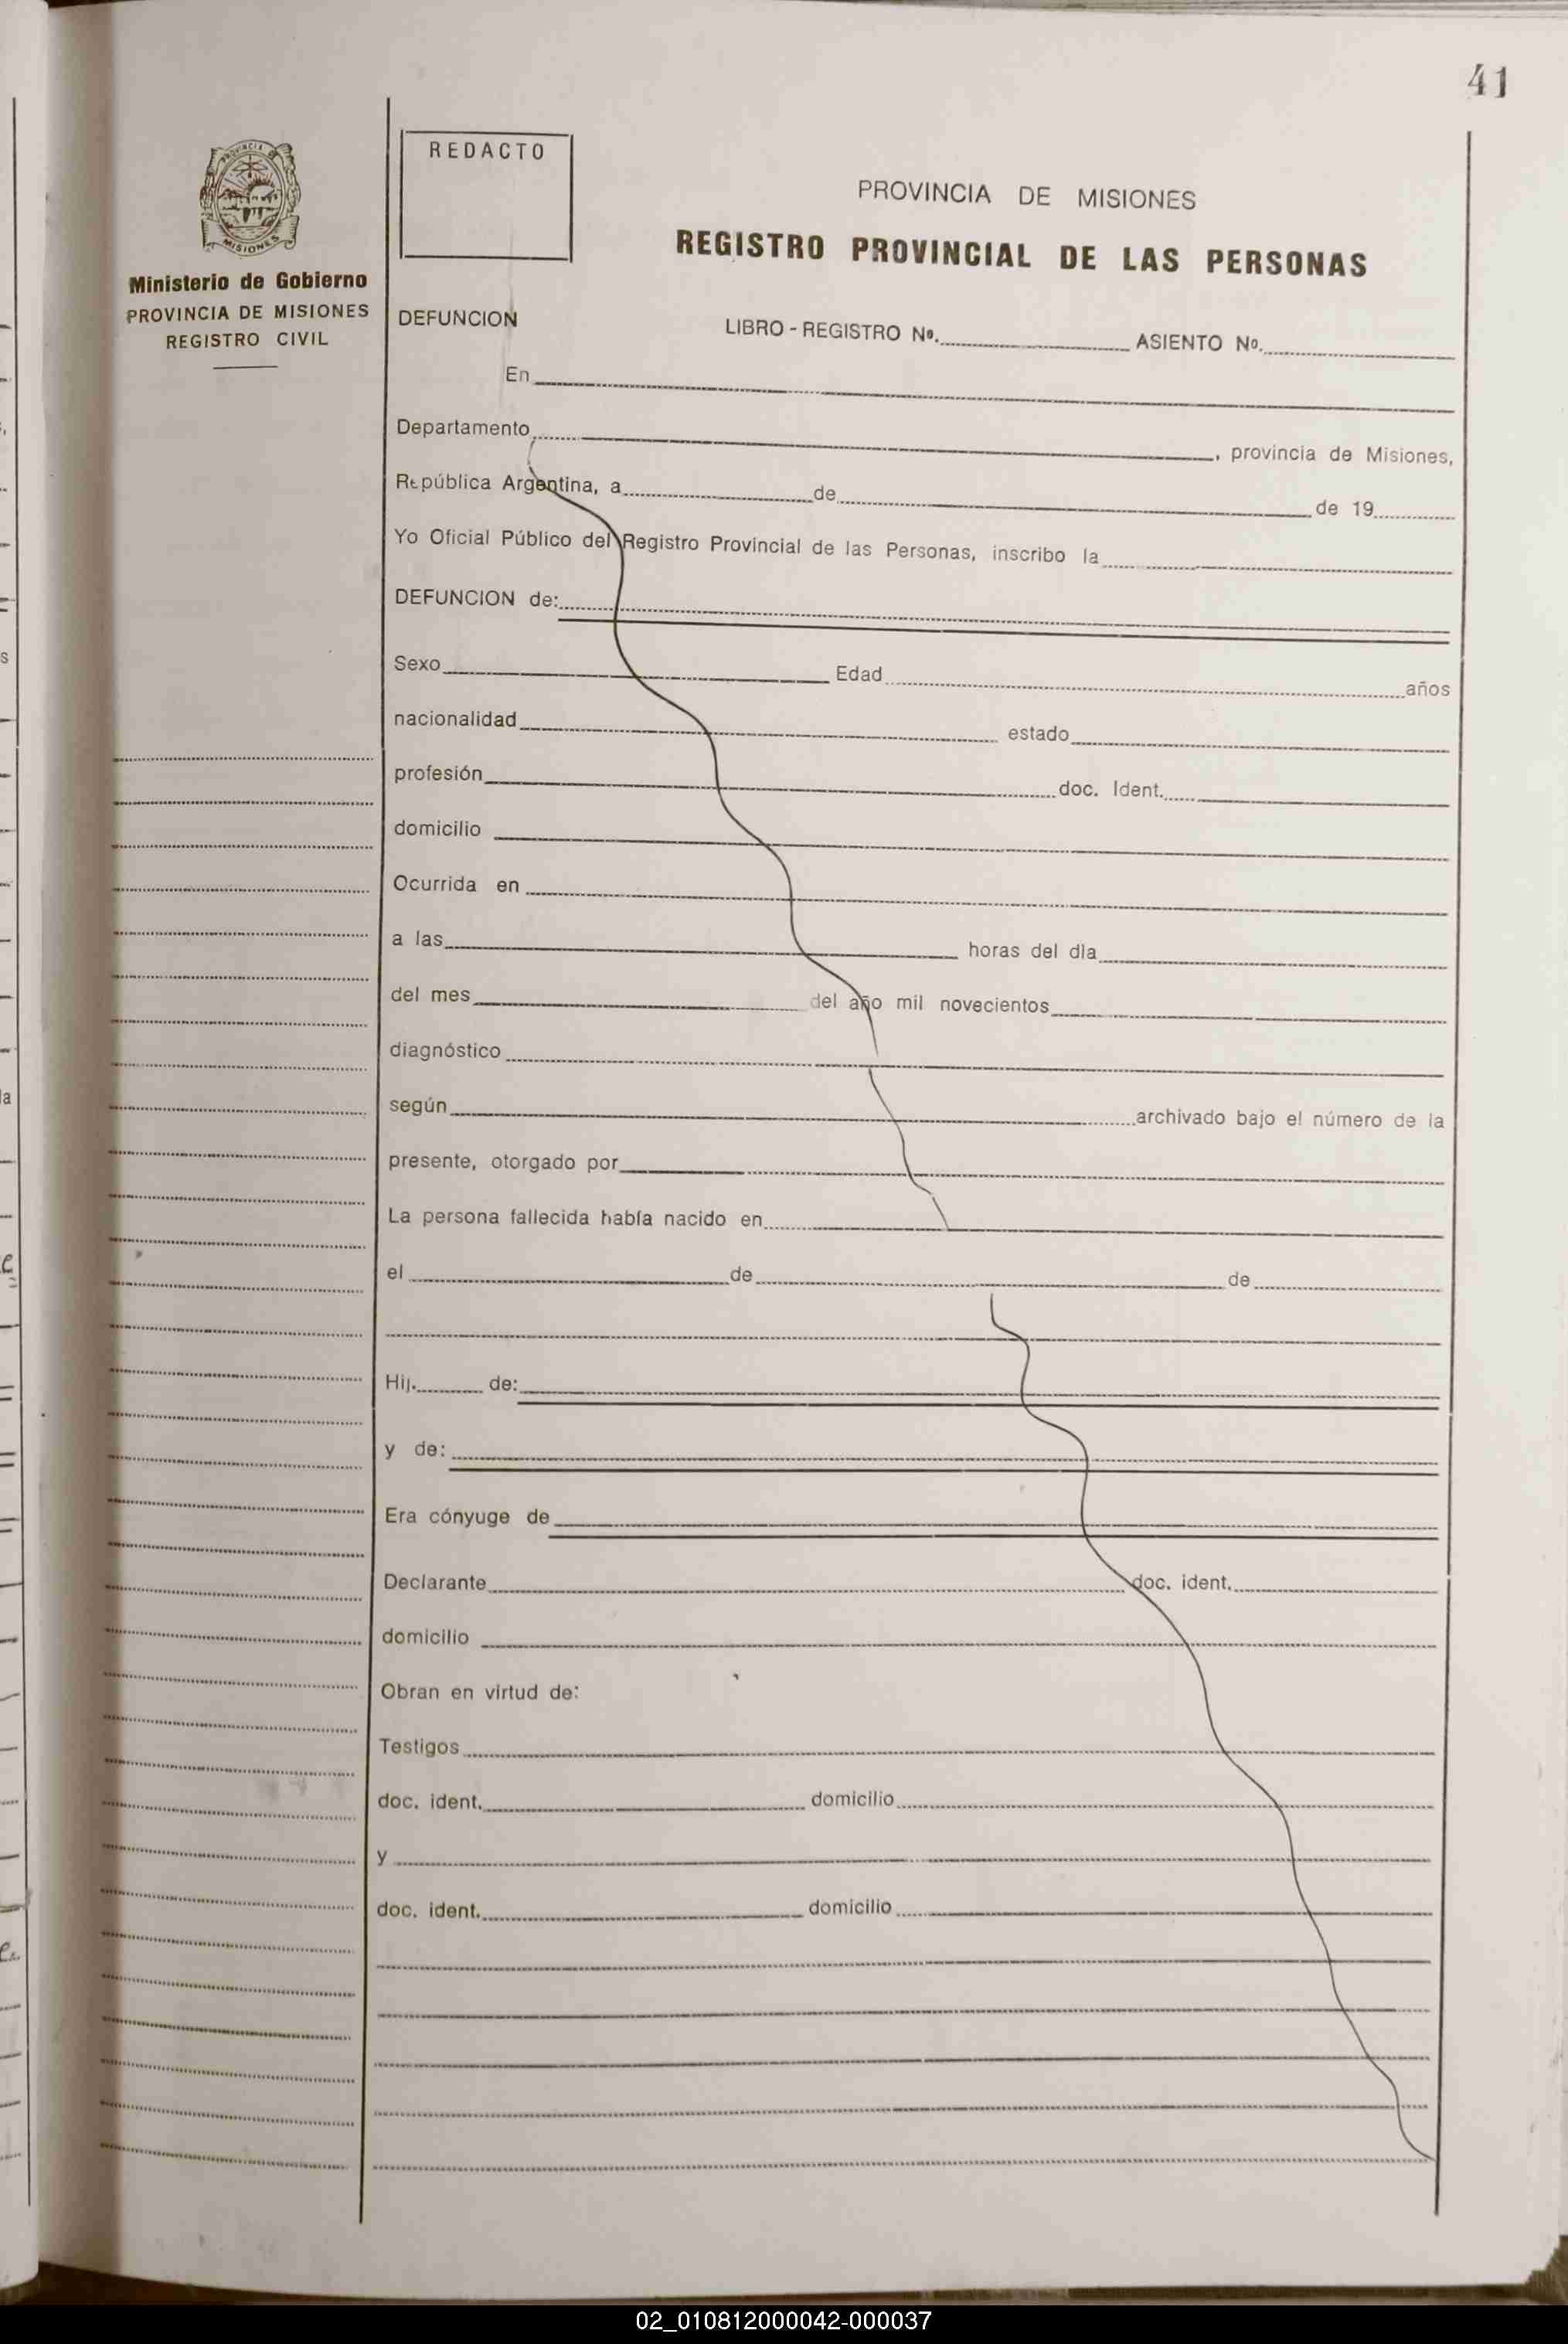 41
PROVINCIA DE
MISIONES
REDACTO
PROVINCIA DE MISIONES
REGISTRO PROVINCIAL DE LAS PERSONAS
Ministerio de Gobierno
PROVINCIA DE MISIONES
REGISTRO CIVIL
DEFUNCION LIBRO - REGISTRO Nº. ASIENTO Nº.
En
Departamento , provincia de Misiones,
República Argentina, a de de 19
Yo Oficial Público del Registro Provincial de las Personas, inscribo la
DEFUNCION de:
Sexo Edad años
nacionalidad estado
profesión doc. Ident.
domicilio
Ocurrida en
a las horas del día
del mes del año mil novecientos
diagnóstico
según archivado bajo el número de la
presente, otorgado por
La persona fallecida había nacido en
el de de
Hij. de:
y de:
Era cónyuge de
Declarante doc. ident.
domicilio
Obran en virtud de:
Testigos
doc. ident. domicilio
y
doc. ident. domicilio
02_010812000042-000037